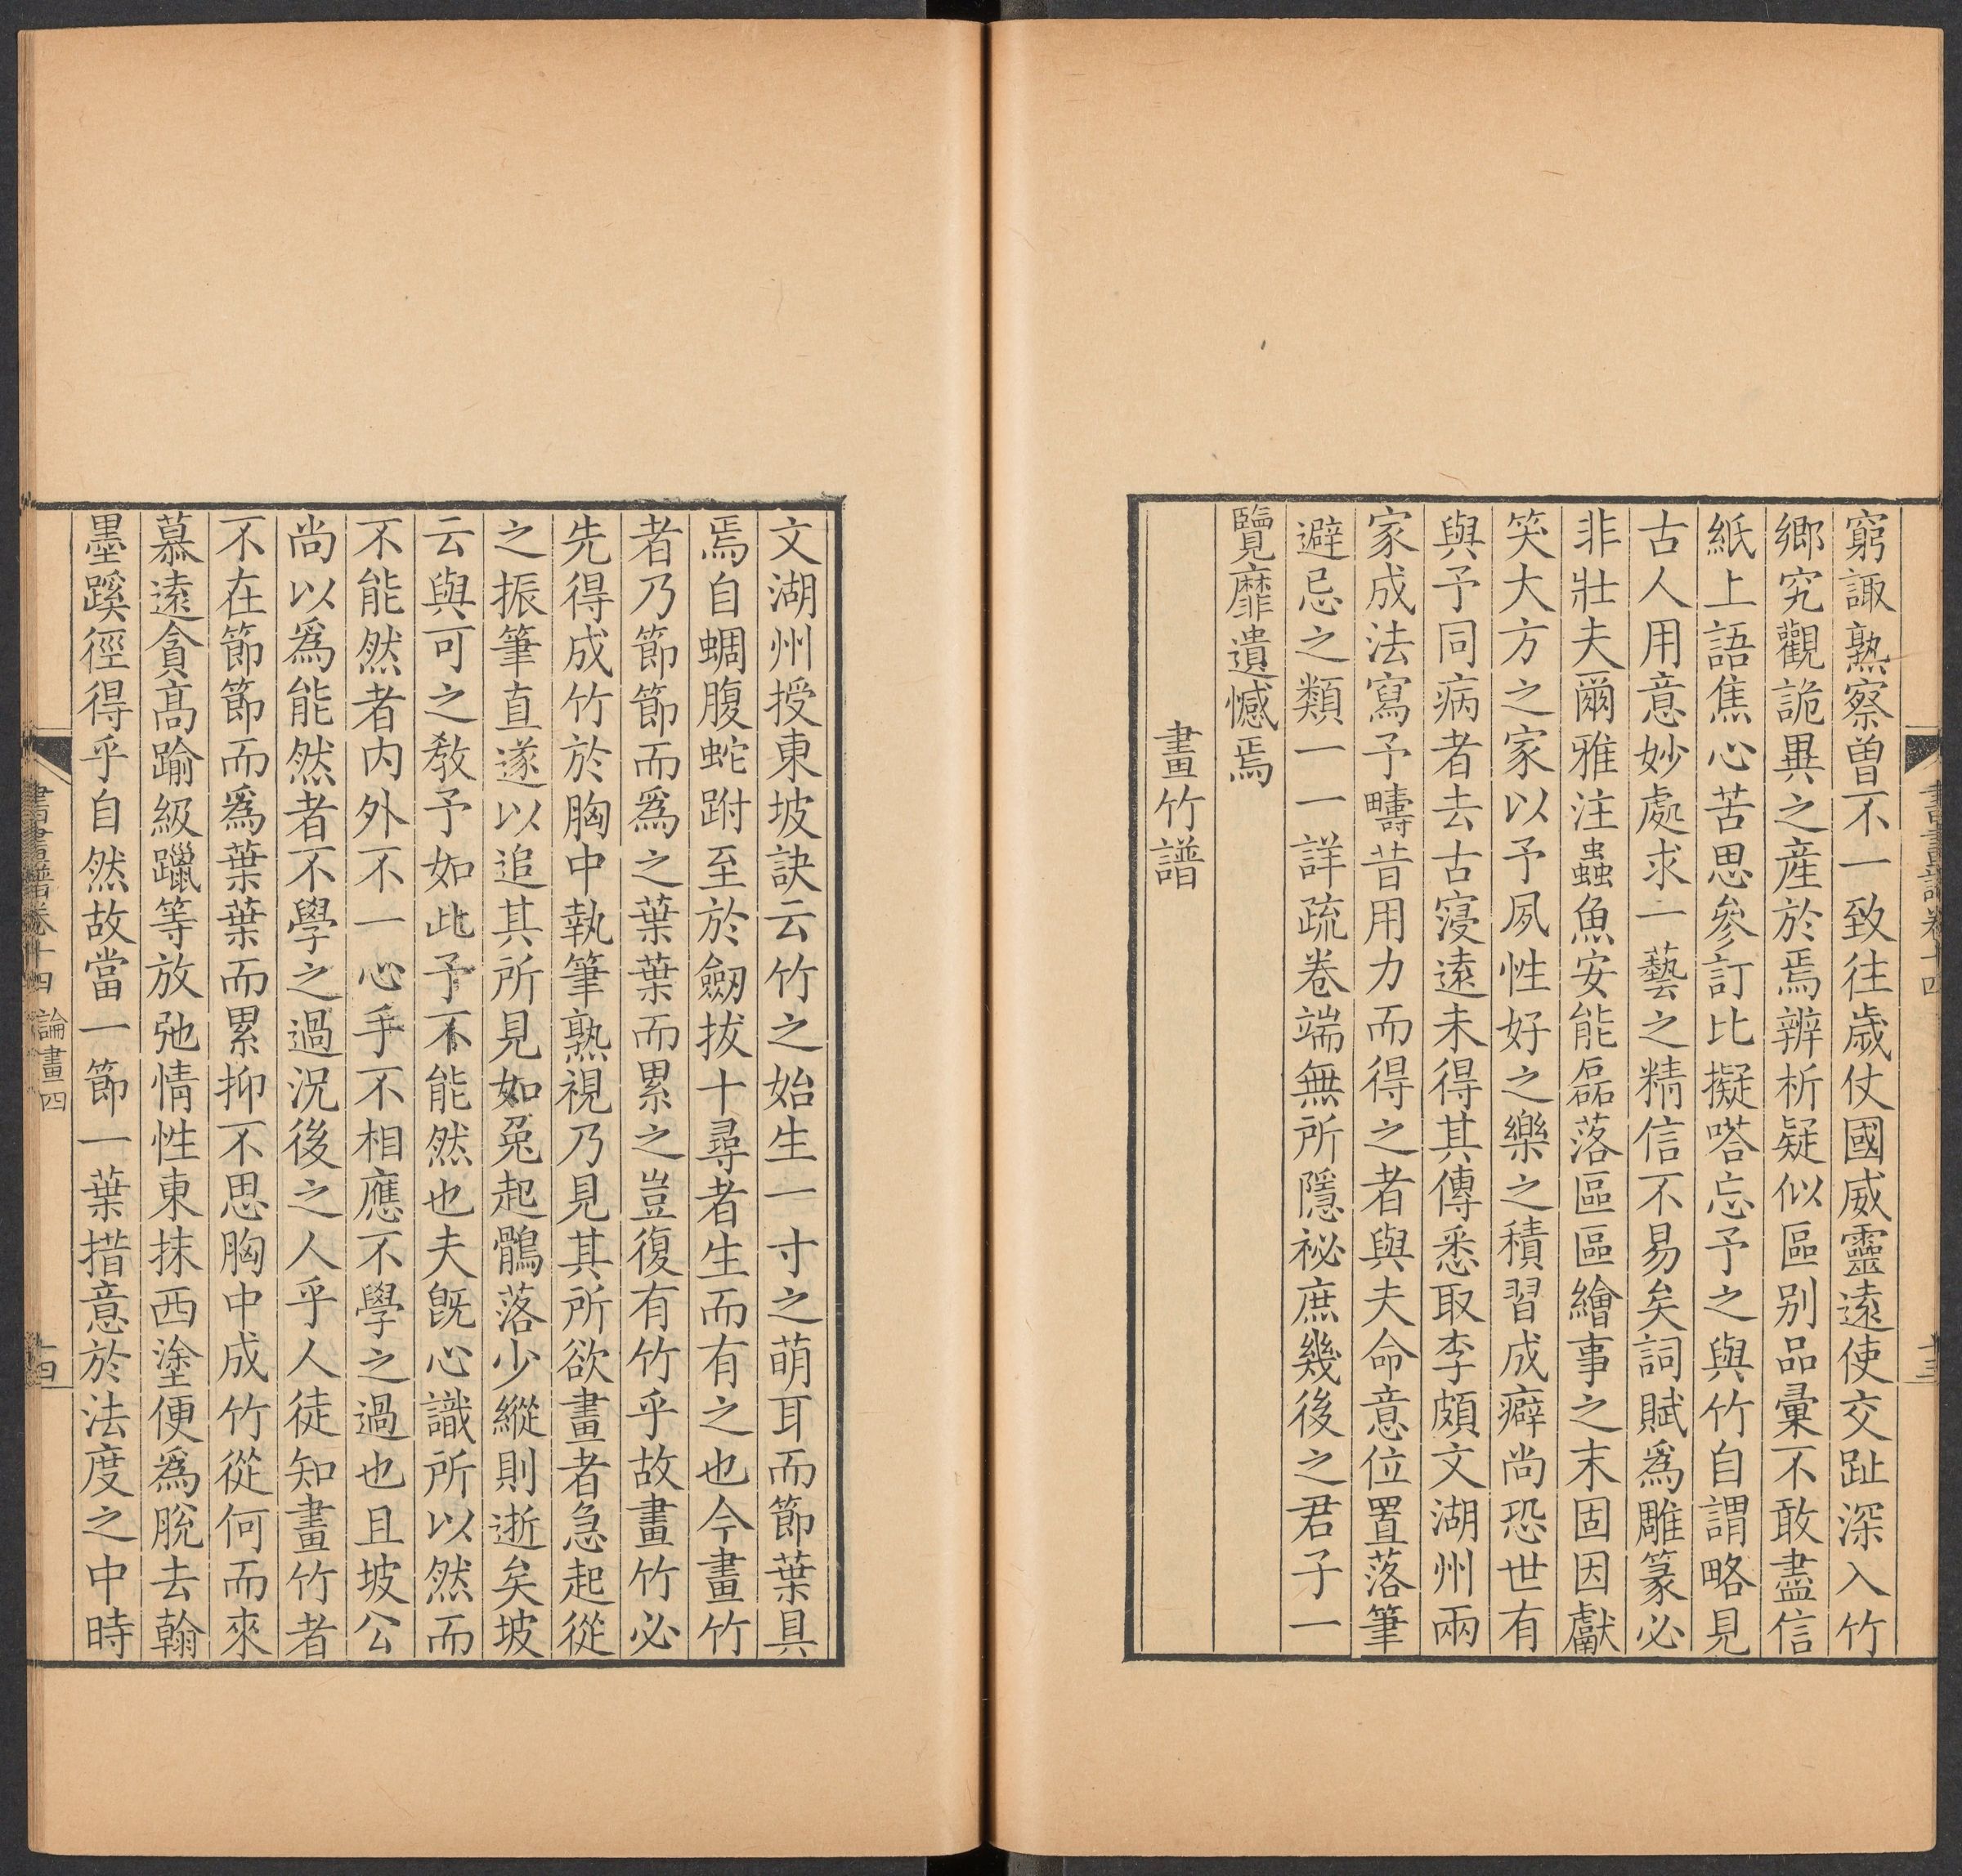 窮諏熟察曾不一致往歲仗國威靈遠使交趾深入竹
鄉究觀詭異之產於焉辨析疑似區别品彙不敢盡信
紙上語焦心苦思參訂比擬嗒忘予之與竹自謂略見
古人用意妙處求一藝之精信不易矣詞賦爲雕篆必
非壯夫爾雅注蟲魚安能磊落區區繪事之末固因獻
笑大方之家以予夙性好之樂之積習成癖尚恐世有
與予同病者去古寖遠未得其傳悉取李頗文湖州兩
家成法寫予疇昔用力而得之者與夫命意位置落筆
避忌之類一一詳疏卷端無所隱祕庶幾後之君子一
覽靡遺憾焉
畫竹譜
文湖州授東坡訣云竹之始生一寸之萌耳而節葉具
焉自蜩腹蛇跗至於劒拔十尋者生而有之也今畫竹
者乃節節而爲之葉葉而累之豈復有竹乎故畫竹必
先得成竹於胸中執筆熟視乃見其所欲畫者急起從
之振筆直遂以追其所見如兔起鶻落少縱則逝矣坡
云與可之敎予如此予不能然也夫旣心識所以然而
不能然者内外不一心手不相應不學之過也且坡公
尚以爲能然者不學之過況後之人乎人徒知畫竹者
不在節節而爲葉葉而累抑不思胸中成竹從何而來
慕遠貪高踰級躐等放弛情性東抹西塗便爲脫去翰
墨蹊徑得乎自然故當一節一葉措意於法度之中時
書畫譜卷十四 論畫四
十四